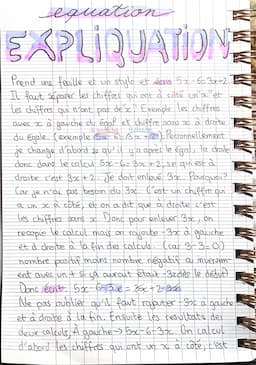 equation
EXPLIQUATION
Prend une feuille et un stylo et écris 5x-6=3x+2
Il faut séparer les chiffres qui ont à côté un "x" et
les chiffres qui n'ont pas de "x". Exemple les chiffres
avec x à gauche du égal et chiffre sans x à droite
du égale. (exemple Personnellement
je change d'abord ce qu'il y a après le égal, la droite
donc dans le calcul 5x-6=3x+2, ce qui est à
droite c'est 3x+2. Je doit enlevé 3x. Pourquoi?
Car je n'ai pas besoin du 3x. C'est un chiffre qui
a un x à côté, et on a dit que à droite c'est
les chiffres sans x! Donc pour enlever 3x, on
recopie le calcul mais on rajoute -3x à gauche
et à droite à la fin des calculs. (car 3-3=0)
nombre positif moins nombre négatif ou inversem-
ent avec un + si ça aurait était -3x dès le début)
Donc écrit 5x-6-3x=3x+2-3x
Ne pas oublier qu'il faut rajouter -3x à gauche
et à droite à la fin. Ensuite les résultats des
deux calculs, A gauche → 5x-6-3x. On calcul
d'abord les chiffres qui ont un x à côté, c'est